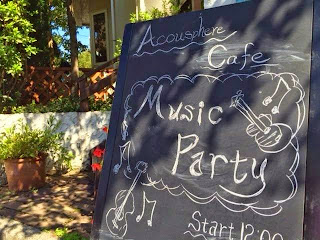 Acousphere
Cafe
Music
Party
Start 12:00